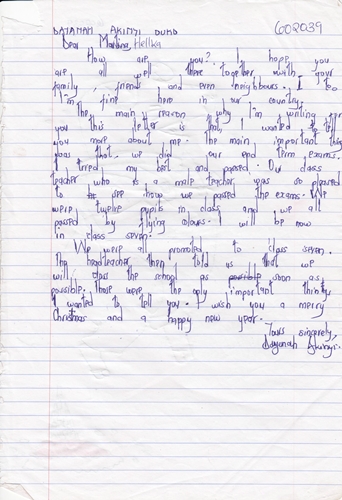 DAYANAH AKINYI OUKO
602039
Dear Martina Hellwa
How are you? I hope you
are all well there together with your
family, friend and even neighbours. I too
I'm fine here in our country.
The main reason why I'm writing
you this letter is that, I wanted to tell
you more about me. The main important thing
was that, we did our end term exams.
I tried my best and passed. Our class
teacher who is a male teacher was so pleased
to see how we passed the exams. We
were twelve pupils in class and we all
passed by flying colours. I will be now
in class seven.
We were all promoted to class seven.
The headteacher then told us that we
will, close the school as possible soon as
possible. Those were the only important things
I wanted to tell you. I wish you a merry
Christmas and a happy new year.
Yours sincerely,
Dayanah Akinyi.